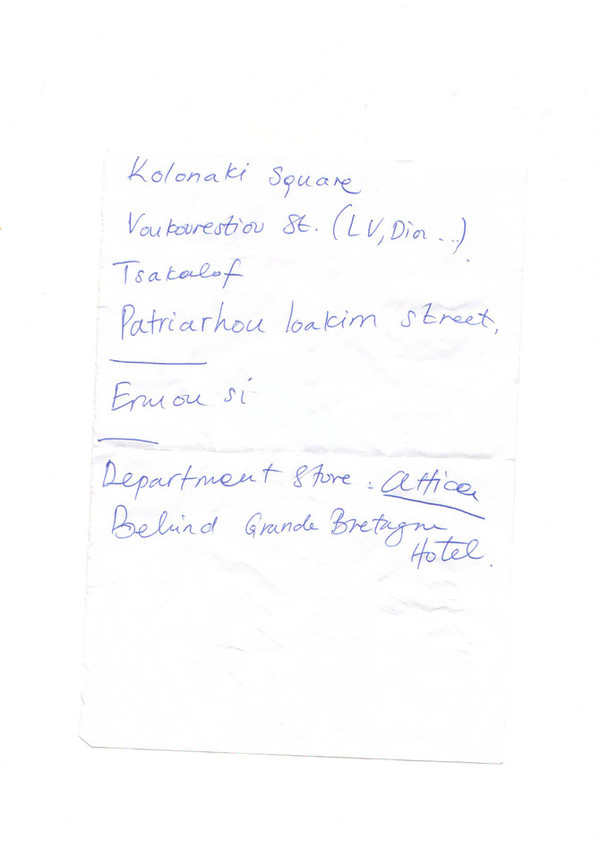 Kolonaki Square
Voukourestiou St. (LV, Dior ...)
Tsakalof
Patriarhou Ioakim street,
Ermou st
Department Store : attica
Behind Grande Bretagne
Hotel.